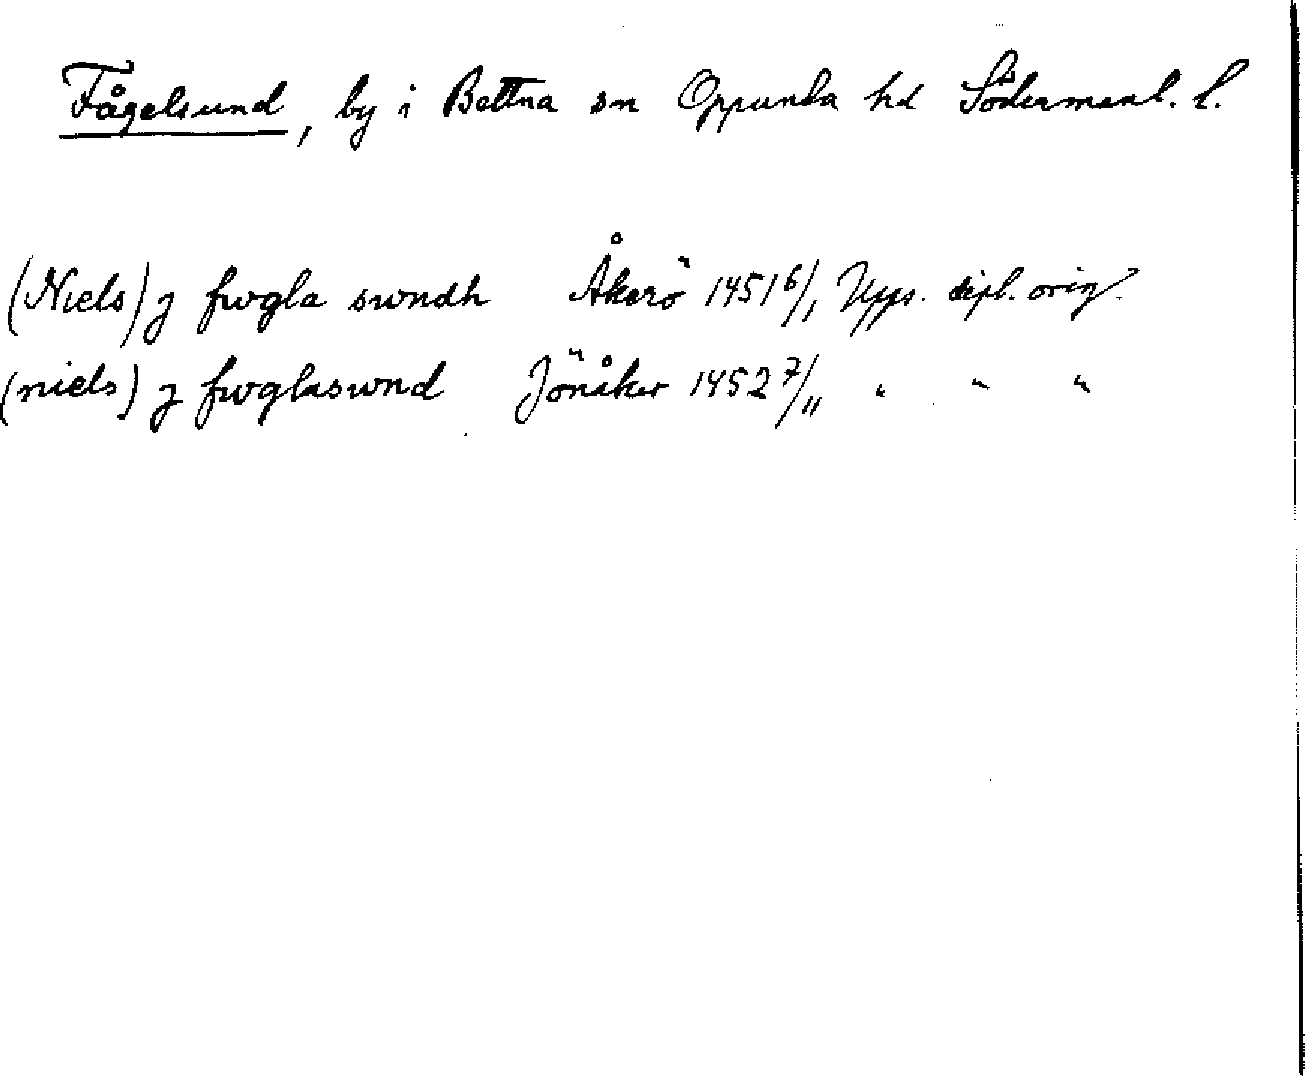 Fågelsund, by i Bettna sn Oppunda hd Södermanl. l.
(Niels) j fwgla swndh Åkerö 1451 6/1 Upps. dipl. orig.
(niels) j fwglaswnd Jönåker 1452 7/11 " " "